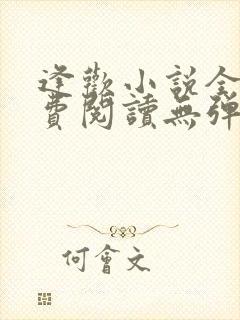 逢歡小說全
費閱讀無彈
何會文